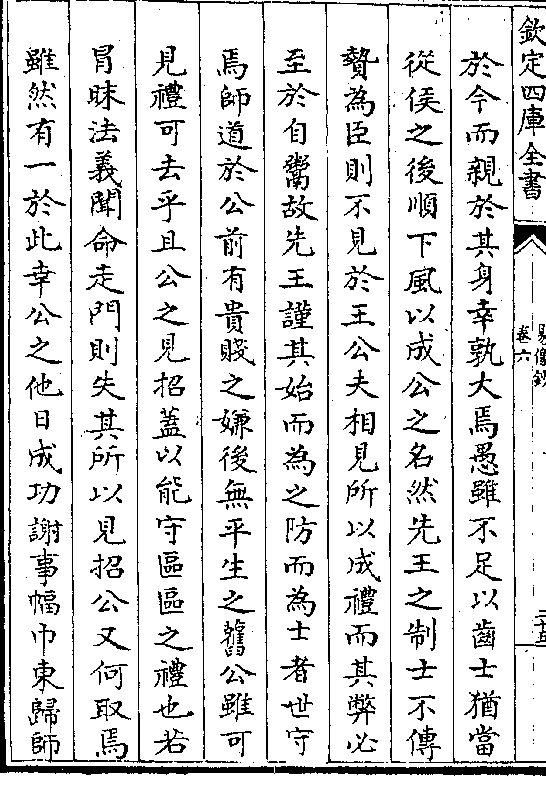 欽定四庫全書
易像鈔
卷六
於今而親於其身幸孰大焉愚雖不足以齒士猶當
從侯之後順下風以成公之名然先王之制士不傳
贄為臣則不見於王公夫相見所以成禮而其弊必
至於自鬻故先王謹其始而為之防而為士者世守
焉師道於公前有貴賤之嫌後無平生之舊公雖可
見禮可去乎且公之見招蓋以能守區區之禮也若
冒昧法義聞命走門則失其所以見招公又何取焉
雖然有一於此幸公之他日成功謝事幅巾東歸師